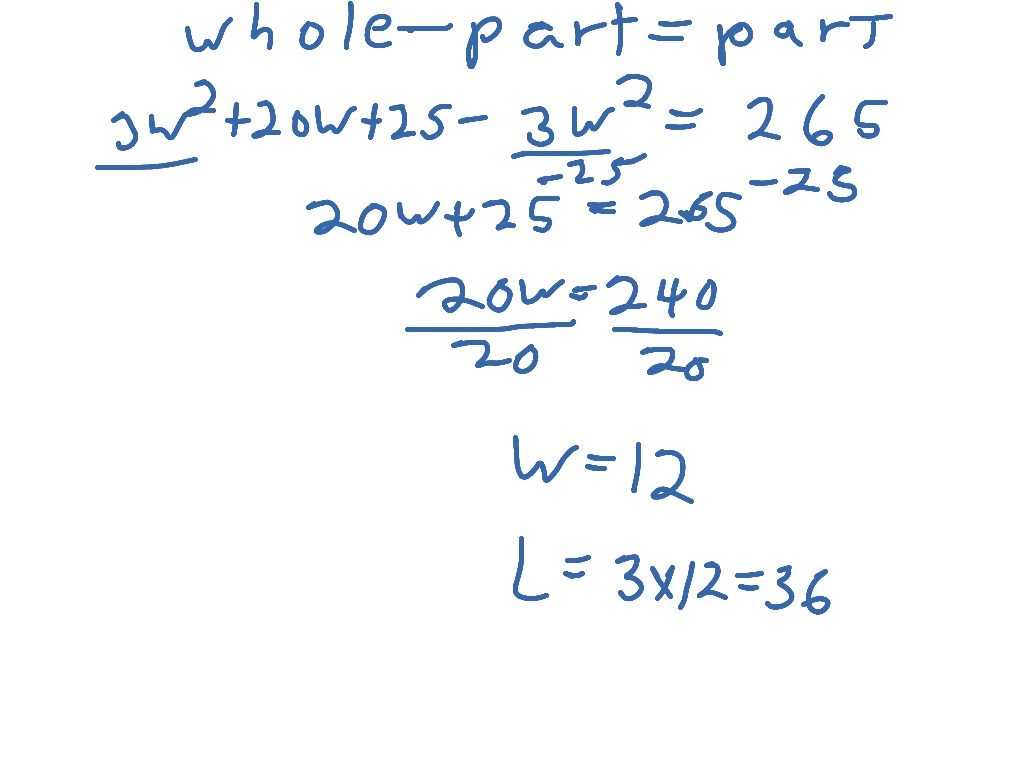 whole-part=part
3w²+20w+25-3w²=265
-25 -25
20w+25=265
20w=240
20 20
w=12
L=3x12=36